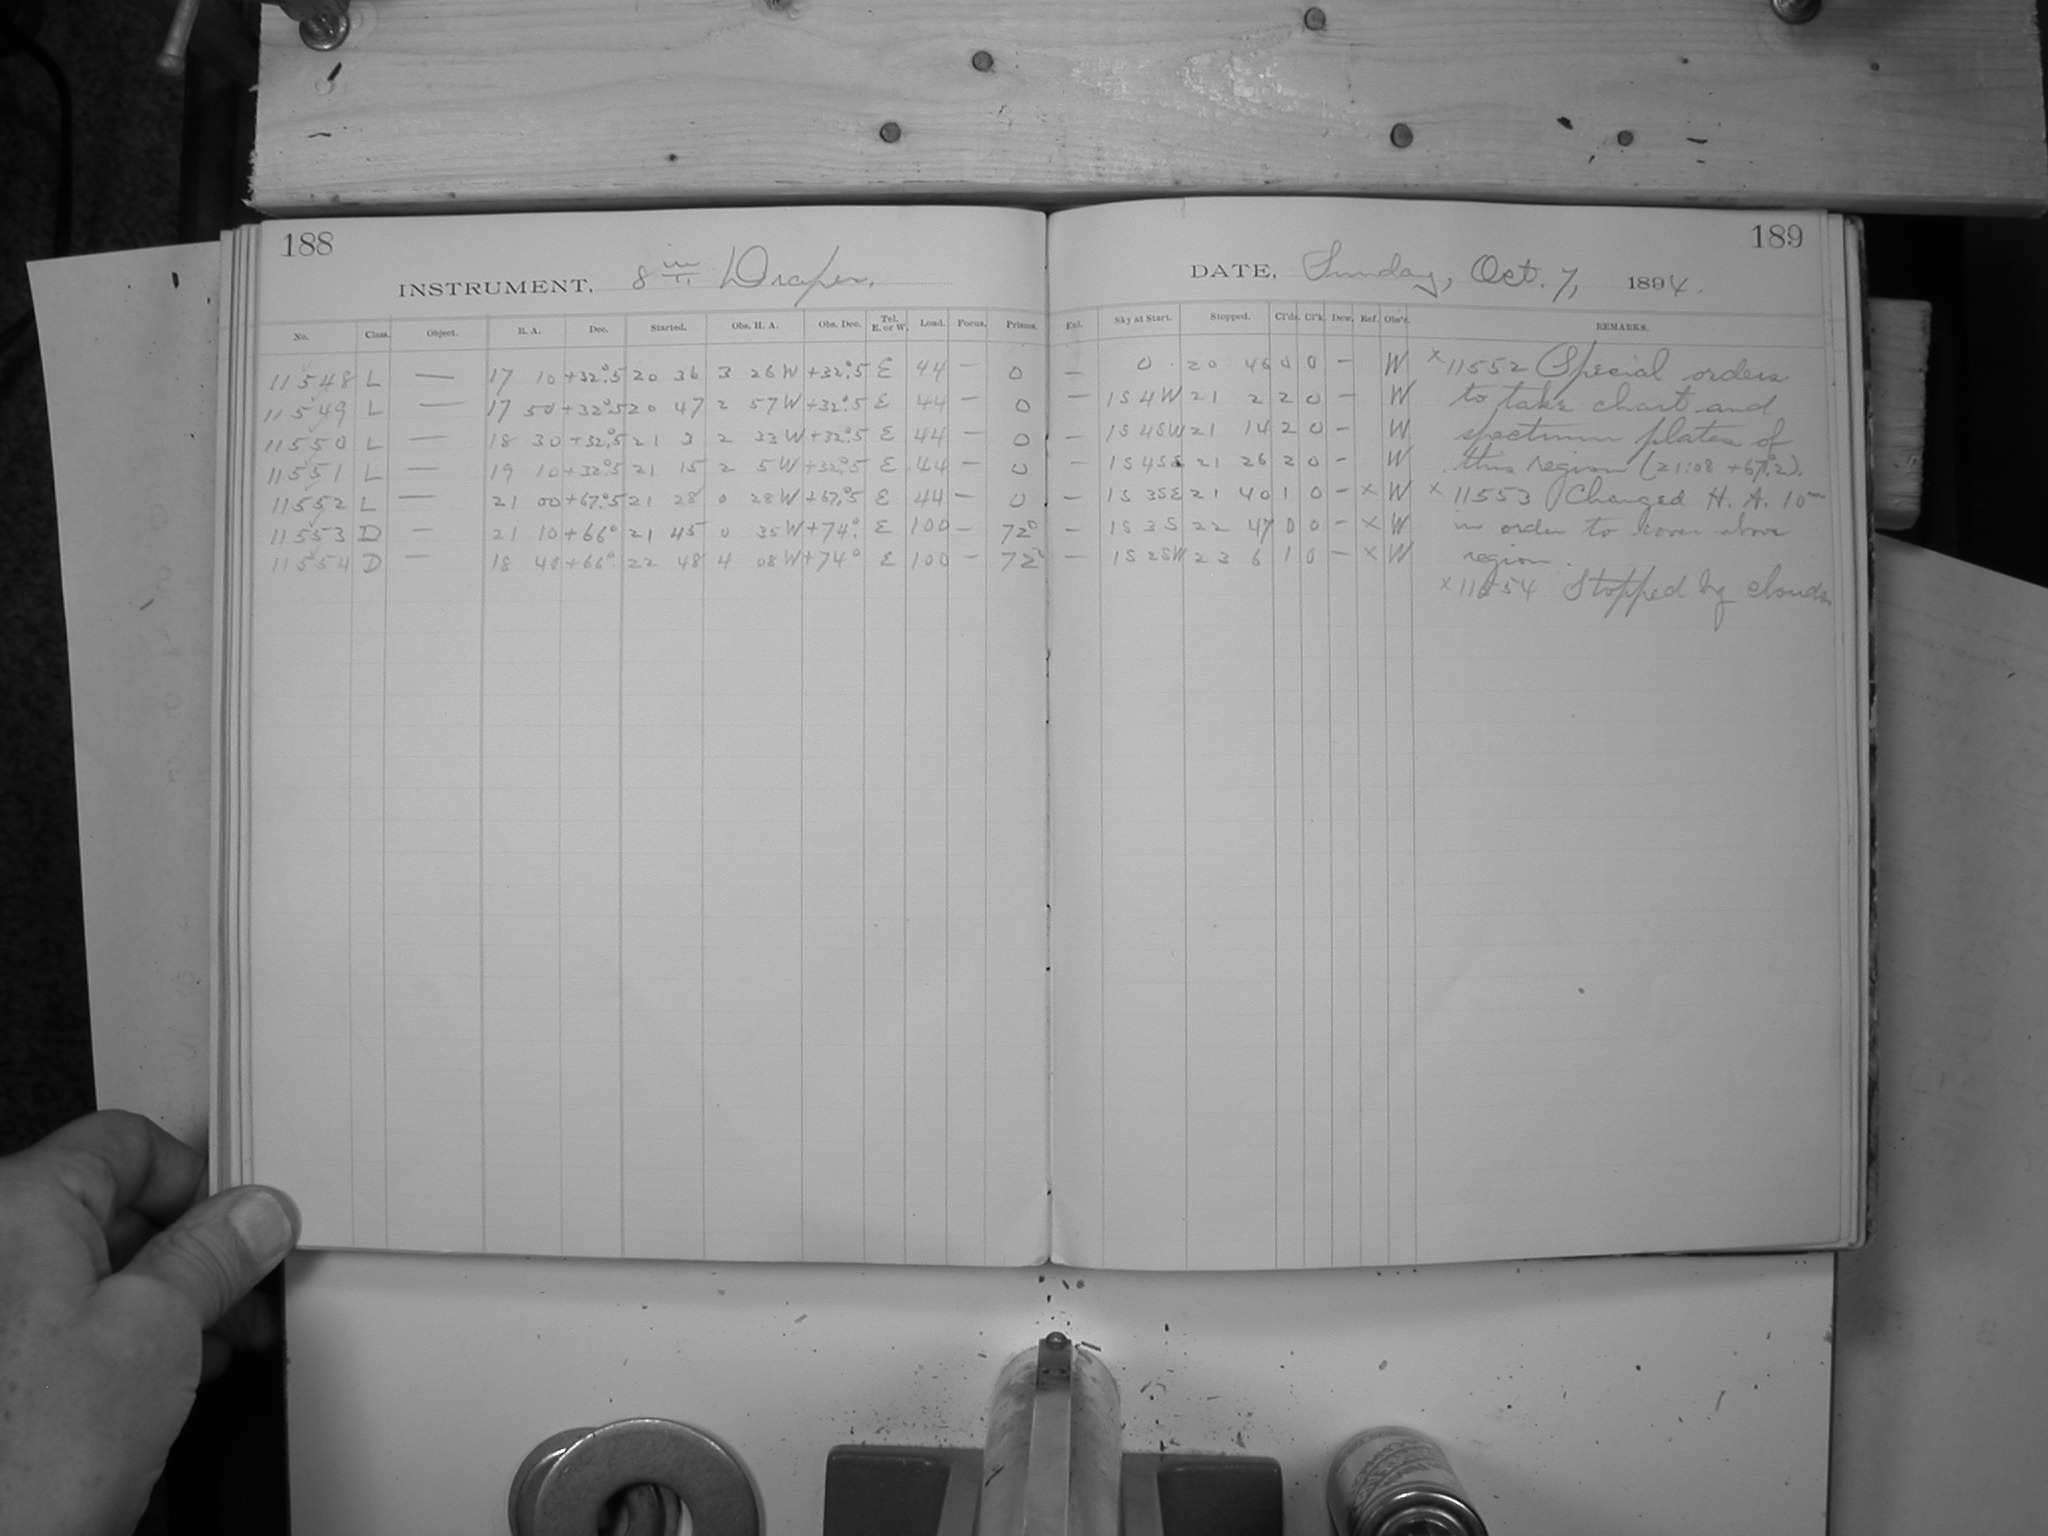 188
INSTRUMENT, 8 in. Draper.
No. Class. Object. R. A. Dec. Started. Obs. H. A. Obs. Dec. Tel. E. or W. Load. Focus. Prisms.
11548 L — 17 10 +32°.5 20 36 3 26W +32°.5 E 44 — 0
11549 L — 17 50 +32°.5 20 47 2 57W +32°.5 E 44 — 0
11550 L — 18 30 +32°.5 21 3 2 33W +32°.5 E 44 — 0
11551 L — 19 10 +32°.5 21 15 2 5W +32°.5 E 44 — 0
11552 L — 21 00 +67°.5 21 28 0 28W +67°.5 E 44 — 0
11553 D — 21 10 +66° 21 45 0 35W +74° E 100 — 72°
11554 D — 18 40 +66° 22 48 4 08W +74° E 100 — 72°
189
DATE, Sunday, Oct. 7, 1894.
Ent. Sky at Start. Stopped. Cl'ds. Cl'k. Dew. Ref. Obs'r. REMARKS.
— 0 20 46 0 0 — W × 11552 Special orders
— 1S4W 21 2 2 0 — W to take chart and
— 1S4SW 21 14 2 0 — W spectrum plates of
— 1S4SE 21 26 2 0 — W this region (21:08 +67°.2).
— 1S3SE 21 40 1 0 — × W × 11553 Changed H. A. 10m
— 1S3S 22 47 0 0 — × W in order to cover above
— 1S2SW 23 6 1 0 — × W region.
× 11554 Stopped by clouds.